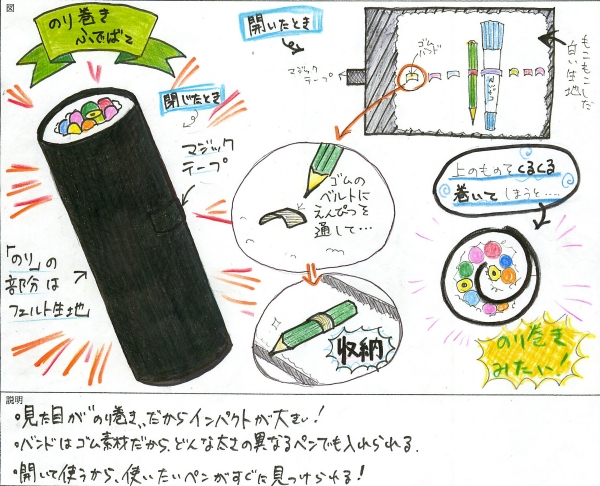 図
のり巻き
ふでばこ
開いたとき
ゴム
バンド
マジック
テープ
もこもこした
白い生地
閉じたとき
マジック
テープ
ゴムの
ベルトに
えんぴつを
通して…
上のものをくるくる
巻いてしまうと……
「のり」の
部分は
フェルト生地
収納
のり巻き
みたい!
説明
・見た目が"のり巻き"だからインパクトが大きい!
・バンドはゴム素材だから、どんな太さの異なるペンでも入れられる.
・開いて使うから、使いたいペンがすぐに見つけられる!